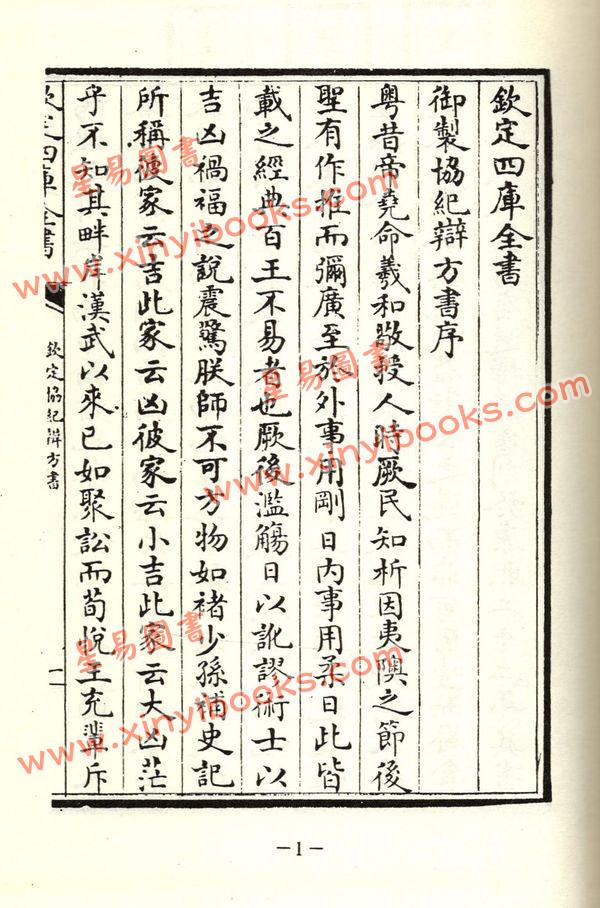 欽定四庫全書
御製協紀辯方書序
粤昔帝堯命羲和敬授人時厥民知析因夷隩之節後
聖有作推而彌廣至於外事用剛日內事用柔日此皆
載之經典百王不易者也厥後濫觴日以訛謬術士以
吉凶禍福之說震驚朕師不可方物如褚少孫補史記
所稱彼家云吉此家云凶彼家云小吉此家云大凶茫
乎不知其畔岸漢武以來已如聚訟而荀悅王充輩斥
欽定四庫全書
欽定協紀辯方書
一
星易圖書
www.xinyibooks.com
星易圖書
www.xinyibooks.com
星易圖書
www.xinyibooks.com
—1—